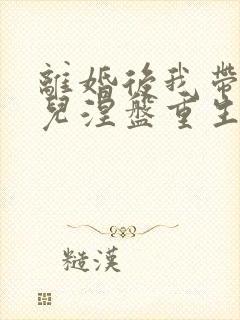 離婚後我帶
兒涅盤重生
糙漢